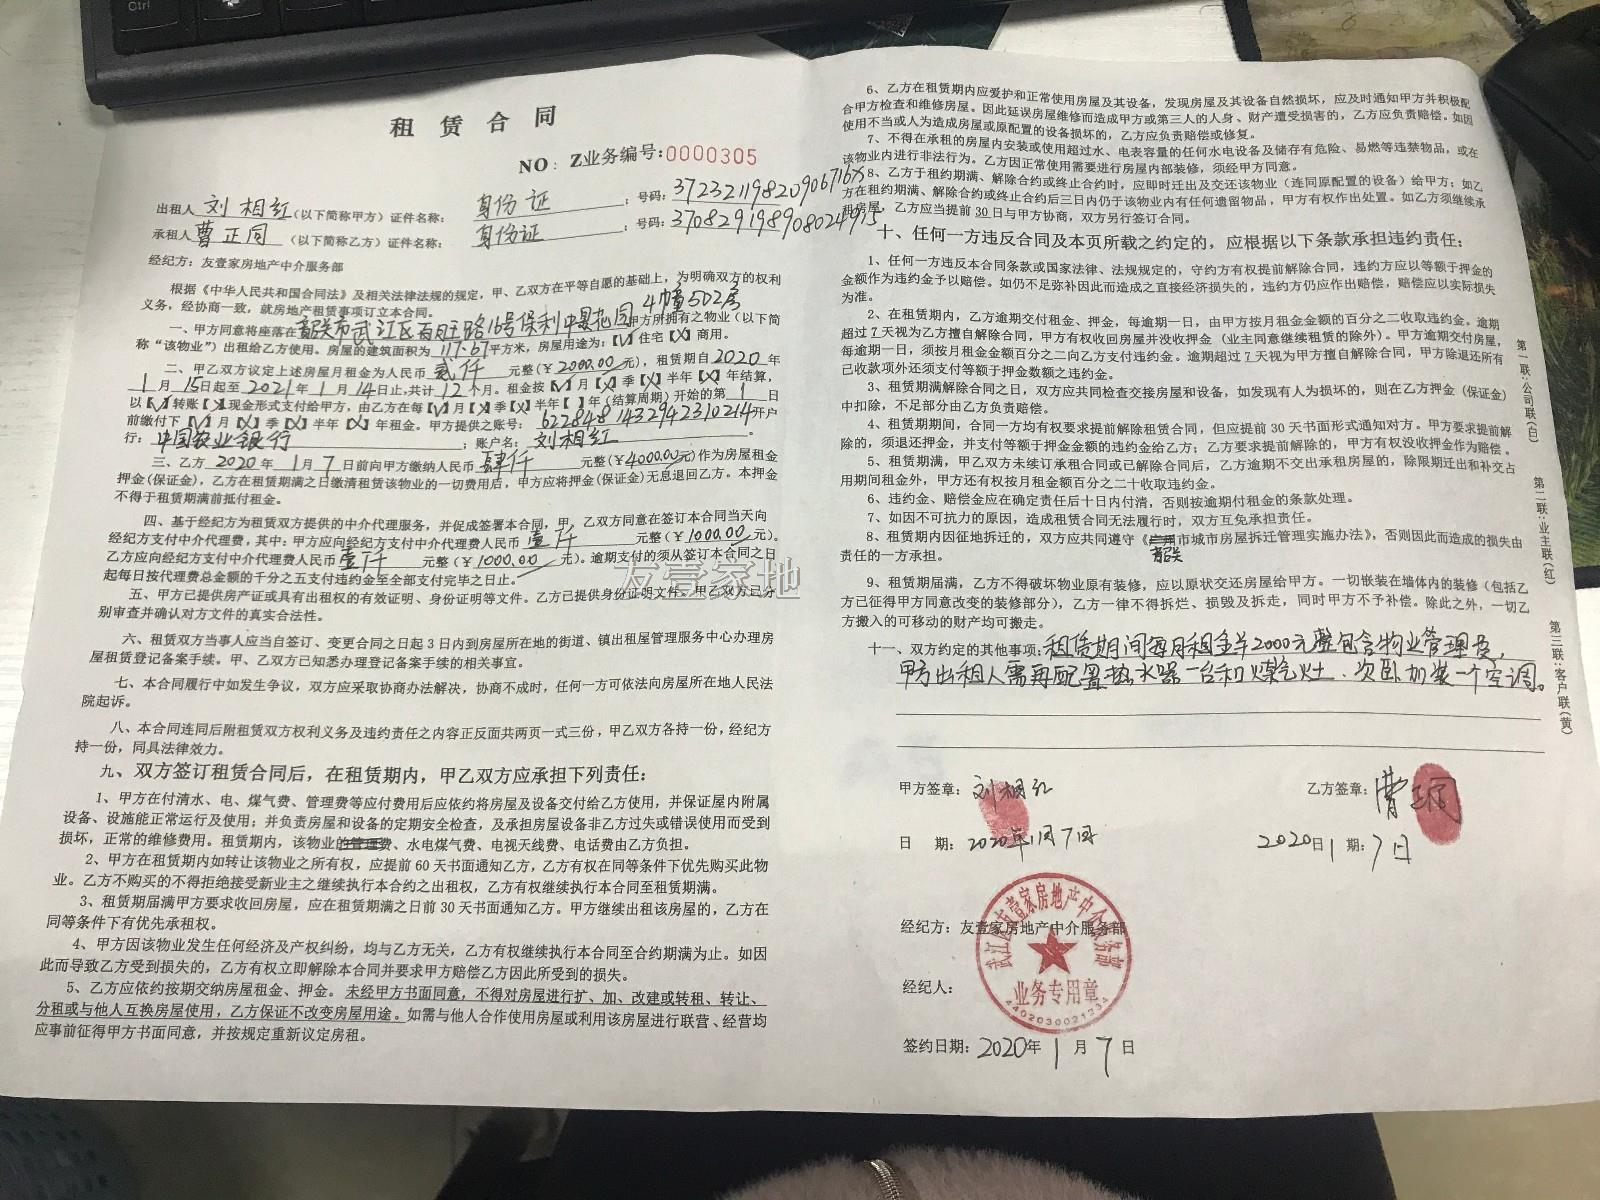 Ctrl
租赁合同
NO：Z业务编号:0000305
出租人 刘相红(以下简称甲方）证件名称： 身份证 ；号码: 37232119820906716X
承租人曹正同 （以下简称乙方）证件名称： 身份证 ；号码: 370829198908024915
经纪方：友壹家房地产中介服务部
根据《中华人民共和国合同法》及相关法律法规的规定，甲、乙双方在平等自愿的基础上，为明确双方的权利
义务，经协商一致，就房地产租赁事项订立本合同。
一、甲方同意将座落在韶关市武江区百旺路16号保利中景花园4幢502房甲方所拥有之物业（以下简
称“该物业”）出租给乙方使用。房屋的建筑面积为 117.67平方米，房屋用途为：【√】住宅【X】商用。
二、甲乙双方议定上述房屋月租金为人民币 贰仟 元整（￥2000.00元），租赁期自2020年
1月15日起至2021年1月14日止,共计12个月。租金按【√】月【X】季【X】半年【X】年结算，
以【√】转账【X】现金形式支付给甲方，由乙方在每【√】月【X】季【X】半年【 】年（结算周期）开始的第1日
前缴付下【√】月【X】季【X】半年【X】年租金。甲方提供之账号：6228481432942310214开户
行：中国农业银行 ；账户名：刘相红 。
三、乙方 2020年1月7日前向甲方缴纳人民币 肆仟 元整（￥4000.00元）作为房屋租金
押金(保证金)，乙方在租赁期满之日缴清租赁该物业的一切费用后，甲方应将押金(保证金)无息退回乙方。本押金
不得于租赁期满前抵付租金。
四、基于经纪方为租赁双方提供的中介代理服务，并促成签署本合同，甲、乙双方同意在签订本合同当天向
经纪方支付中介代理费，其中：甲方应向经纪方支付中介代理费人民币 壹仟 元整（￥1000.00元）。
乙方应向经纪方支付中介代理费人民币 壹仟 元整（￥1000.00元）。逾期支付的须从签订本合同之日
起每日按代理费总金额的千分之五支付违约金至全部支付完毕之日止。
五、甲方已提供房产证或具有出租权的有效证明、身份证明等文件。乙方已提供身份证明文件。甲乙双方已分
别审查并确认对方文件的真实合法性。
友壹家地
六、租赁双方当事人应当自签订、变更合同之日起3日内到房屋所在地的街道、镇出租屋管理服务中心办理房
屋租赁登记备案手续。甲、乙双方已知悉办理登记备案手续的相关事宜。
七、本合同履行中如发生争议，双方应采取协商办法解决，协商不成时，任何一方可依法向房屋所在地人民法
院起诉。
八、本合同连同后附租赁双方权利义务及违约责任之内容正反面共两页一式三份，甲乙双方各持一份，经纪方
持一份，同具法律效力。
九、双方签订租赁合同后，在租赁期内，甲乙双方应承担下列责任：
1、甲方在付清水、电、煤气费、管理费等应付费用后应依约将房屋及设备交付给乙方使用，并保证屋内附属
设备、设施能正常运行及使用；并负责房屋和设备的定期安全检查，及承担房屋设备非乙方过失或错误使用而受到
损坏，正常的维修费用。租赁期内，该物业的管理费、水电煤气费、电视天线费、电话费由乙方负担。
2、甲方在租赁期内如转让该物业之所有权，应提前60天书面通知乙方，乙方有权在同等条件下优先购买此物
业。乙方不购买的不得拒绝接受新业主之继续执行本合约之出租权，乙方有权继续执行本合同至租赁期满。
3、租赁期届满甲方要求收回房屋，应在租赁期满之日前30天书面通知乙方。甲方继续出租该房屋的，乙方在
同等条件下有优先承租权。
4、甲方因该物业发生任何经济及产权纠纷，均与乙方无关，乙方有权继续执行本合同至合约期满为止。如因
此而导致乙方受到损失的，乙方有权立即解除本合同并要求甲方赔偿乙方因此所受到的损失。
5、乙方应依约按期交纳房屋租金、押金。未经甲方书面同意，不得对房屋进行扩、加、改建或转租、转让、
分租或与他人互换房屋使用，乙方保证不改变房屋用途。如需与他人合作使用房屋或利用该房屋进行联营、经营均
应事前征得甲方书面同意，并按规定重新议定房租。
6、乙方在租赁期内应爱护和正常使用房屋及其设备，发现房屋及其设备自然损坏，应及时通知甲方并积极配
合甲方检查和维修房屋。因此延误房屋维修而造成甲方或第三人的人身、财产遭受损害的，乙方应负责赔偿。如因
使用不当或人为造成房屋或原配置的设备损坏的，乙方应负责赔偿或修复。
7、不得在承租的房屋内安装或使用超过水、电表容量的任何水电设备及储存有危险、易燃等违禁物品，或在
该物业内进行非法行为。乙方因正常使用需要进行房屋内部装修，须经甲方同意。
8、乙方于租约期满、解除合约或终止合约时，应即时迁出及交还该物业（连同原配置的设备）给甲方；如乙
方在租约期满、解除合约或终止合约后三日内仍于该物业内有任何遗留物品，甲方有权作出处置。如乙方须继续承
租房屋，乙方应当提前30日与甲方协商，双方另行签订合同。
十、任何一方违反合同及本页所载之约定的，应根据以下条款承担违约责任：
1、任何一方违反本合同条款或国家法律、法规规定的，守约方有权提前解除合同，违约方应以等额于押金的
金额作为违约金予以赔偿。如仍不足弥补因此而造成之直接经济损失的，违约方仍应作出赔偿，赔偿应以实际损失
为准。
2、在租赁期内，乙方逾期交付租金、押金，每逾期一日，由甲方按月租金金额的百分之二收取违约金。逾期
超过7天视为乙方擅自解除合同，甲方有权收回房屋并没收押金（业主同意继续租赁的除外）。甲方逾期交付房屋，
每逾期一日，须按月租金金额百分之二向乙方支付违约金。逾期超过7天视为甲方擅自解除合同，甲方除退还所有
已收款项外还须支付等额于押金数额之违约金。
3、租赁期满解除合同之日，双方应共同检查交接房屋和设备，如发现有人为损坏的，则在乙方押金(保证金)
中扣除，不足部分由乙方负责赔偿。
4、租赁期期间，合同一方均有权要求提前解除租赁合同，但应提前30天书面形式通知对方。甲方要求提前解
除的，须退还押金，并支付等额于押金金额的违约金给乙方；乙方要求提前解除的，甲方有权没收押金作为赔偿。
5、租赁期满，甲乙双方未续订承租合同或已解除合同后，乙方逾期不交出承租房屋的，除限期迁出和补交占
用期间租金外，甲方还有权按月租金额百分之二十收取违约金。
6、违约金、赔偿金应在确定责任后十日内付清，否则按逾期付租金的条款处理。
7、如因不可抗力的原因，造成租赁合同无法履行时，双方互免承担责任。
8、租赁期内因征地拆迁的，双方应共同遵守《市城市房屋拆迁管理实施办法》，否则因此而造成的损失由
韶关
责任的一方承担。
9、租赁期届满，乙方不得破坏物业原有装修，应以原状交还房屋给甲方。一切嵌装在墙体内的装修（包括乙
方已征得甲方同意改变的装修部分），乙方一律不得拆烂、损毁及拆走，同时甲方不予补偿。除此之外，一切乙
方搬入的可移动的财产均可搬走。
十一、双方约定的其他事项：租赁期间每月租金￥2000元整包含物业管理费，
甲方出租人需再配置热水器一台和煤气灶、次卧加装一个空调。
第一联:公司联(白)
第二联:业主联(红)
第三联:客户联(黄)
甲方签章：刘相红 乙方签章：曹正同
日 期：2020年1月7日 2020日1期：7日
经纪方：友壹家房地产中介服务部
武江区友壹家房地产中介服务部
业务专用章
4402030021234
经纪人：
签约日期：2020年1月7日